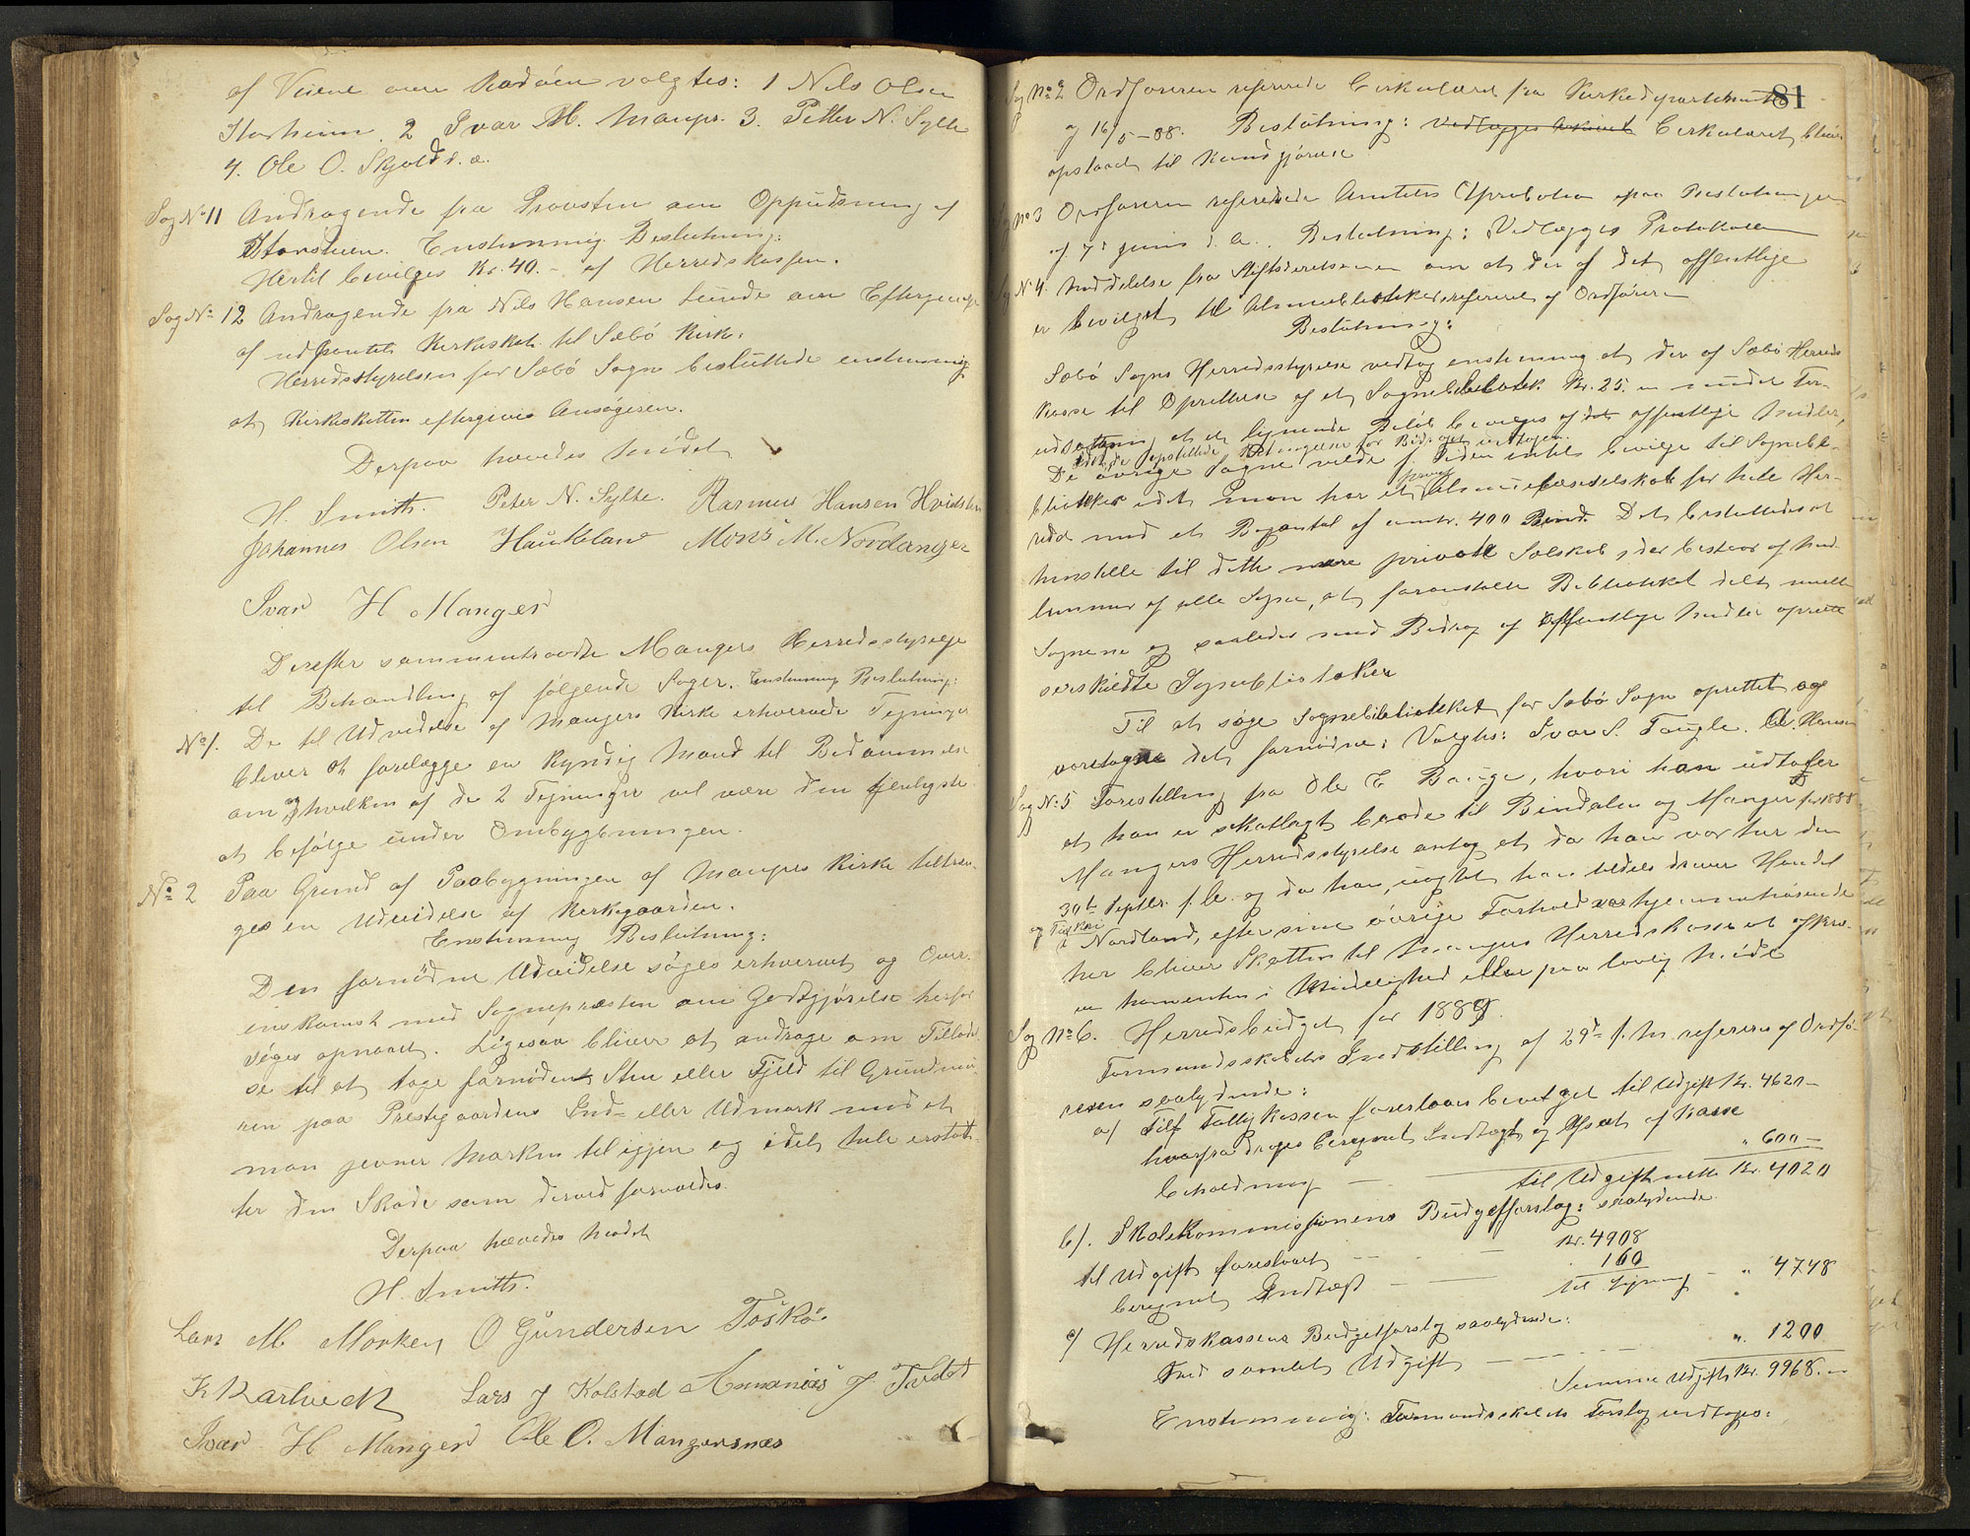 af Veiene over Radøen valgtes: 1 Nils Olsen
Storheim. 2 Ivar M. Manger. 3. Petter N. Sylte
4. Ole O. Skjold s. a.
Sag No 11 Andragende fra Provsten om Oppudsning af
Storstuen. Enstemmig Beslutning:
Hertil bevilges Kr. 40.- af Herredskassen.
Sag No 12 Andragende fra Nils Hansen Lunde om Eftergivelse
af udpantet Kirkeskat til Sæbø Kirke.
Herredsstyrelsen for Sæbø Sogn besluttede enstemmig
at Kirkeskatten eftergives Ansøgeren.
Derpaa hævedes Mødet
H. Smith. Peter N. Sylte. Rasmus Hansen Hvidsten
Johannes Olsen Haukeland Mons M. Nordanger
Ivar H Manger
Derefter sammentraadte Mangers Herredsstyrelse
til Behandling af følgende Sager. Enstemmig Beslutning:
No 1. De til Udvidelse af Mangers Kirke erhvervede Tegninger
bliver at forelægge en kyndig Mand til Bedømmelse
om og hvilken af de 2 Tegninger vil være den tjenligste
at befølge under Ombygningen.
No 2 Paa Grund af Paabygningen af Mangers Kirke tiltræn-
ges en Udvidelse af Kirkegaarden.
Enstemmig Beslutning:
Den fornødne Udvidelse søges erhvervet og Over-
enskomst med Sognepræsten om Godtgjørelse herfor
søges opnaaet. Ligesaa bliver at andrage om Tilladel-
se til at tage fornøden Sten eller Fjeld til Grundmu-
ren paa Prestegaardens Ind- eller Udmark med at
man jevner Marken til igjen og i det hele erstat-
ter den Skade som derved forvoldes.
Derpaa hævedes Mødet
H. Smith.
Lars M Morken O Gundersen Toskø.
K Kartvedt Lars J Kolstad Ananias J Tvedt
Ivar H Manger Ole O. Mangersnes
81
Sag No 2 Ordføreren refererede Cirkulære fra Kirkedepartementet
af 16/5-88. Beslutning: Vedlægges Arkivet Cirkulæret bliver
opslaaet til Kundgjørelse
Sag No 3 Ordføreren refererede Amtets Aprobation paa Beslutningen
af 7de Juni d. A. Beslutning: Vedlægges Protokollen
Sag No 4. Meddelelse fra Stiftsdirektionen om at der af det offentlige
er bevilget til Almuebibliotheker refereret af Ordføreren
Beslutning:
Sæbø Sogns Herredsstyrelse vedtog enstemmig at der af Sæbø Herreds
kasse til Oprettelse af et Sognebibliothek Kr. 25. under For-
udsætning at et lignende Beløb bevilges af det offentlige Midler,
idet de opstillede Betingelser for Bidraget vedtages.
De øvrige Sogne vilde f Tiden intet bevilge til Sognebi-
bliotheker idet man har et privat Almuelæseselskab for hele Her-
redet med et Bogantal af omtr. 400 Bind. Det besluttedes at
henstille til dette mere private Selskab, der bestaar af Med-
lemmer af alle Sogne, at foranstalte Bibliotheket delt mellem
Sognene og saaledes med Bidrag af offentlige Midler oprette
serskildte Sognebibliotheker
Til at søge Sognebibliotheket for Sæbø Sogn oprettet og
foretage det fornødne: Valgtes: Ivar S. Taugle. A. Hansen
Sag No 5 Forestilling fra Ole E Bauge, hvori han udtaler
at han er skatlagt baade til Bindalen og Manger for 1888
Mangers Herredsstyrelse antog at da han var her den
30te Septbr. f. A. og da han, uagtet han tildels driver Handel
og Fiskeri
i Nordland, efter sine øvrige Forhold er hjemmehørende
her bliver Skatten til Mangers Herredskasse at afkræ-
ve hamenten i Mindelighed eller paa lovlig Maade
Sag No 6. Herredsbudget for 1889.
Formandskabets Indstilling af 29de f. M. refereres af Ordfø-
reren saalydende:
a) Til Fattigkassen foreslaaes bevilget til Udgift Kr. 4620 -
hvorfra drages beregnet Indtægt og Afsæt af Kasse
beholdning - - " 600 -
til Udgift netto Kr. 4020
b). Skolekommissionens Budgetforslag: saalydende
til Udgift foreslaaet - - - Kr. 4908
beregnet Indtægt - - 160
til Ligning - " 4748
c) Herredskassens Budgetforslag saalydende:
Med samlet Udgift - - - - - " 1200
Summa Udgift Kr. 9968. -
Enstemmig: Formandskabets Forslag vedtages: